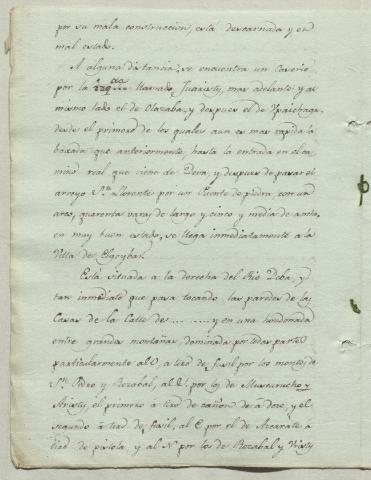 por su mala construccion, está descarnada y en
mal estado.
A alguna distancia, se encuentra un Caserio
por la izqda llamado Juaristy, mas adelante y al
mismo lado el de Olazabal, y despues el de
desde el primero de los quales aun es mas rapida la
baxada que anteriormente, hasta la entrada en el ca
mino real que viene de Deva, y despues de pasar el
arroyo Sn Llorente por un Puente de piedra, con un
arco, quarenta varas de largo y cinco y media de ancho,
en muy buen estado, se llega inmediatamente a la
Villa de Elgoybar.
Está situada a la derecha del Rio Deba, y
tan inmediato que pasa tocando las paredes de las
Casas de la Calle de ......... y en una hondonada
entre grandes montañas, dominada por todas partes
particularmente al O, a tiro de fusil por los montes de
Sn Pedro y Rozabal, al por los de Muscurucho y
Aristy, el primero à tiro de cañon de à doce, y el
segundo à tiro de fusil, al E por el de Azcarate a
tiro de pistola, y al N por los de Rozabal y